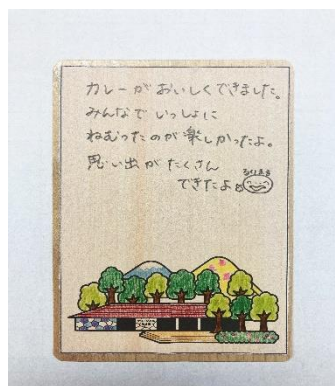 カレーがおいしくできました。
みんなでいっしょに
ねむったのが楽しかったよ。
思い出がたくさん
できたよ